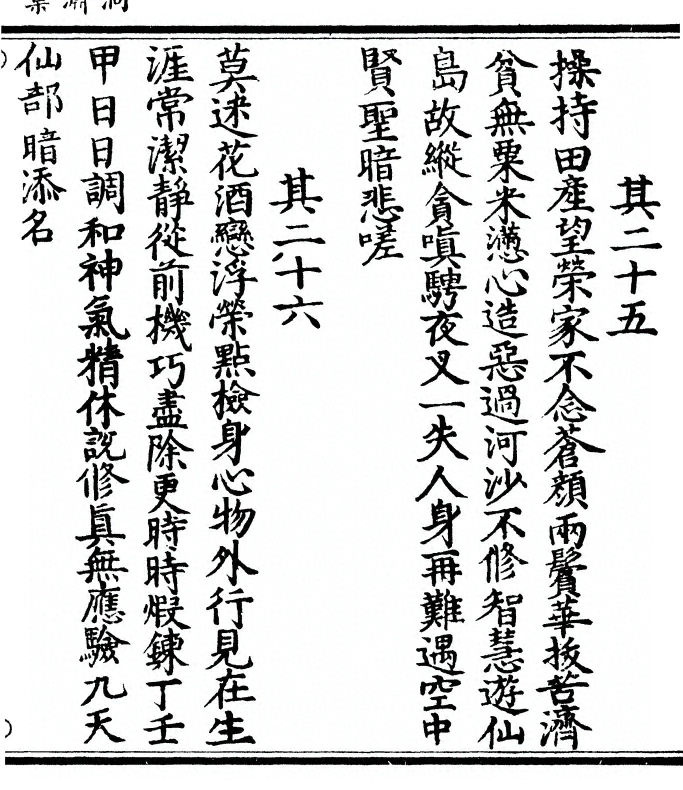 其二十五
操持田產望榮家不念蒼顏兩鬢華拔苦濟
貧無粟米懣心造惡過河沙不修智慧遊仙
島故縱貪嗔騁夜叉一失人身再難遇空中
賢聖暗悲嗟
其二十六
莫迷花酒戀浮榮點檢身心物外行見在生
涯常潔靜從前機巧盡除更時時煆鍊丁壬
甲日日調和神氣精休說修眞無應驗九天
仙部暗添名